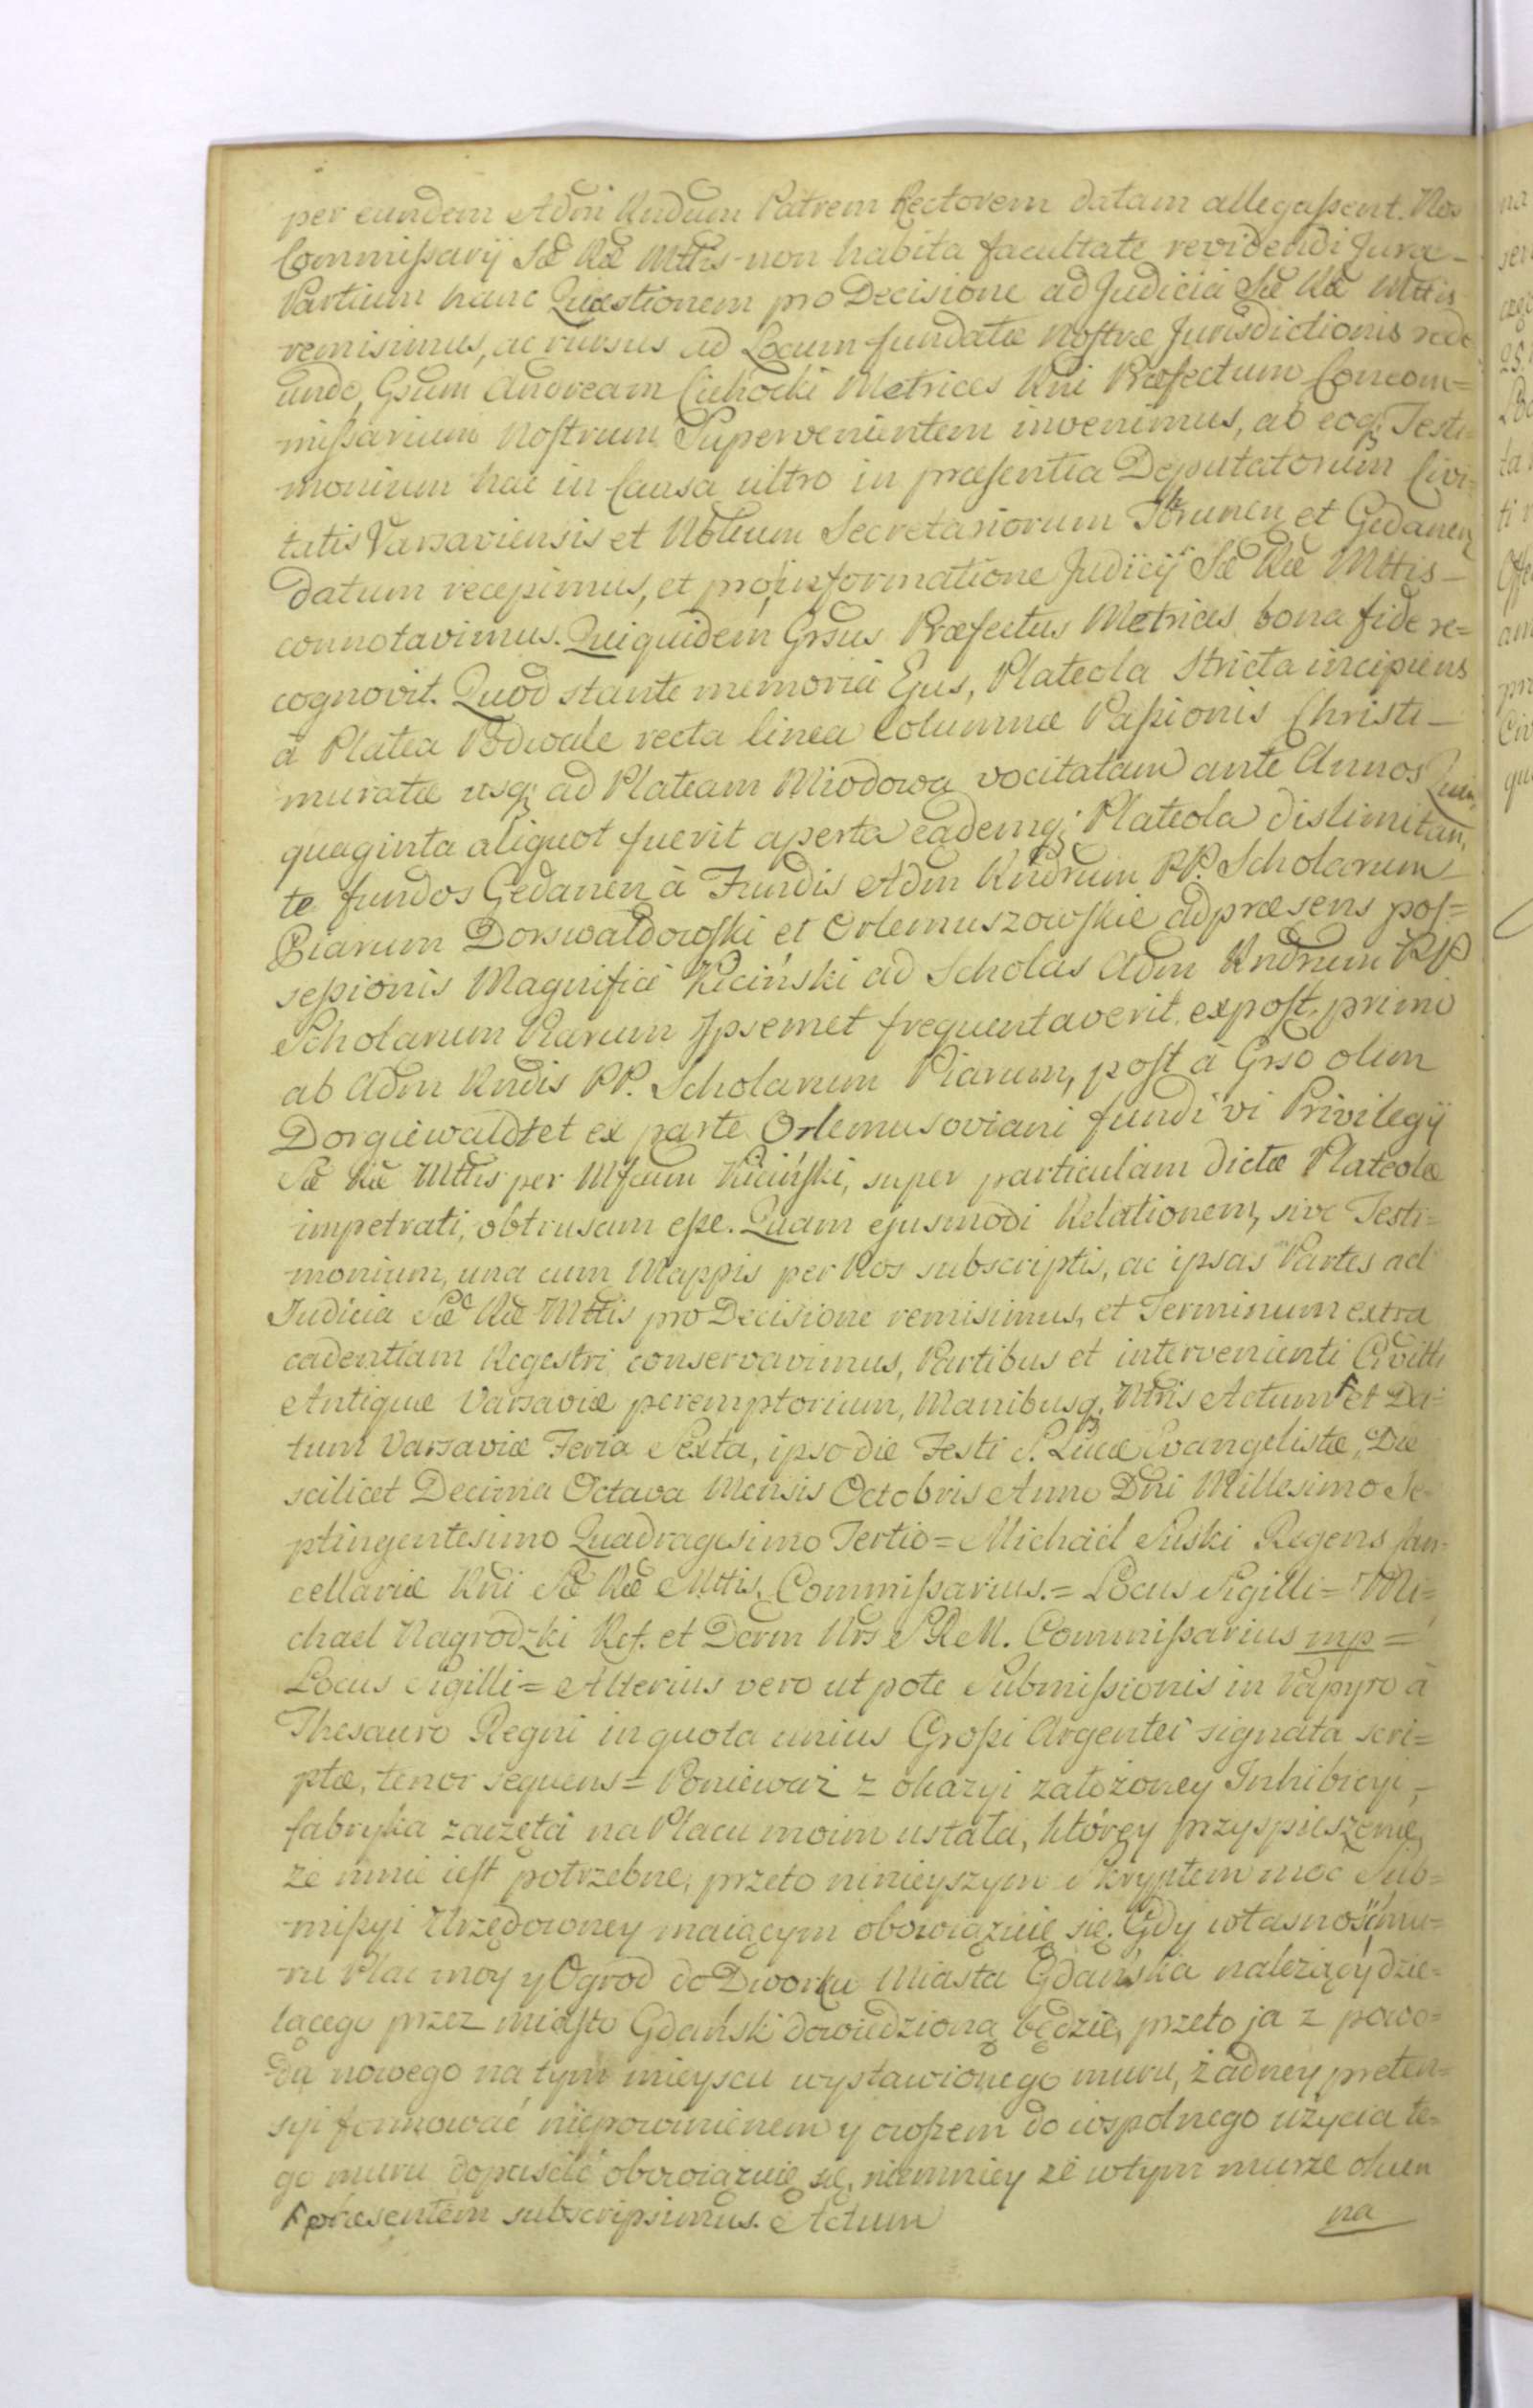 per eundem Adm Rndum Patrem Rectorem datam allegaßent. Nos
Commißarij Sæ Ræ Mttis non habita facultate revidendi Jura
Partium hanc Quæstionem pro Decisione ad Judicia Sæ Ræ Mttis
remisimus, ac rursus ad Locum fundatæ nostræ Jurisdictionis rede
undo, Gsum Andream Cichocki Metrices Rni Præfectum Concom=
mißarium Nostrum Supervenientem invenimus, ab eoq; Testi
monium hac in Causa ultro in præsentia Deputatorum Civi
tatis Varsaviensis et Nobilium Secretariorum Thorunen et Gedanen
datum recepimus, et pro informatione Judicij Sæ Ræ Mttis
connotavimus. Quiquidem Grsus Præfectus Metrices bona fide re=
cognovit. Quod stante memoria Ejus, Plateola Stricta incipiens
à Platea Podwale recta linea Columnæ Paßionis Christi
muratæ usq; ad Plateam Miodowa vocitatam ante Annos Quin
quaginta aliquot fuerit aperta eademq; Plateola dislimitan
te fundos Gedanen à Fundis Adm Rndrum PP. Scholarum
Piarum Dorswaldowski et Orlemuszowskie ad præsens pos=
seßionis Magnifici Kiciński ad Scholas Adm Rndrum PP
Scholarum Piarum Ipsemet frequentaverit, expost primo
ab Adm Rndis PP. Scholarum Piarum, post à Grso olim
Dorgiewaldt et ex parte Orlemusoviani fundi vi Privilegij
Sæ Ræ Mttis per Mfcum Kiciński, super particulam dictæ Plateolæ
impetrati, obtrusam eße. Quam ejusmodi Relationem, sive Testi=
monium, una cum Mappis per Nos subscriptis, ac ipsas Partes ad
Judicia Sæ Ræ Mttis pro Decisione remisimus, et Terminum extra
cadentiam Regestri conservavimus, Partibus et intervenienti Civitti
Antiquæ Varsaviæ peremptorium, Manibusq; Ntris Actum et Da=
tum Varsaviæ Feria Sexta, ipso die Festi S. Lucæ Evangelistæ, Die
scilicet Decima Octava Mensis Octobris Anno Dni Millesimo Se
ptingentesimo Quadragesimo Tertio = Michael Suski Regens Can=
cellariæ Rni Sæ Ræ Mttis Commißarius. = Locus Sigilli = Mi=
chael Nagrodzki Ref. et Decrm Nrs S R M. Commißarius mp =
Locus Sigilli = Alterius vero ut pote Submißionis in Papyro à
Thesauro Regni in quota unius Großi Argentei signata scri=
ptæ, tenor sequens = Ponieważ z okazyi założoney Inhibicyi,
fabryka zaczęta na Placu moim ustała, którey przyspieszenie,
że mnie iest potrzebne, przeto ninieyszym Skryptem moc Sub=
mißyi Urzędowney maiącym obowiązuię się. Gdy własność mu=
ru Plac moy y Ogrod do Dworku Miasta Gdańska należący dzie=
lącego przez miasto Gdańsk dowiedzioną będzie, przeto ja z powo=
du nowego na tym mieyscu wystawionego muru, żadney preten=
syi formować niepowinienem y owszem do wspolnego użycia te=
go muru dopuścić obowiązuię się, niemniey że w tym murze okien
præsentem subscripsimus. Actum
na